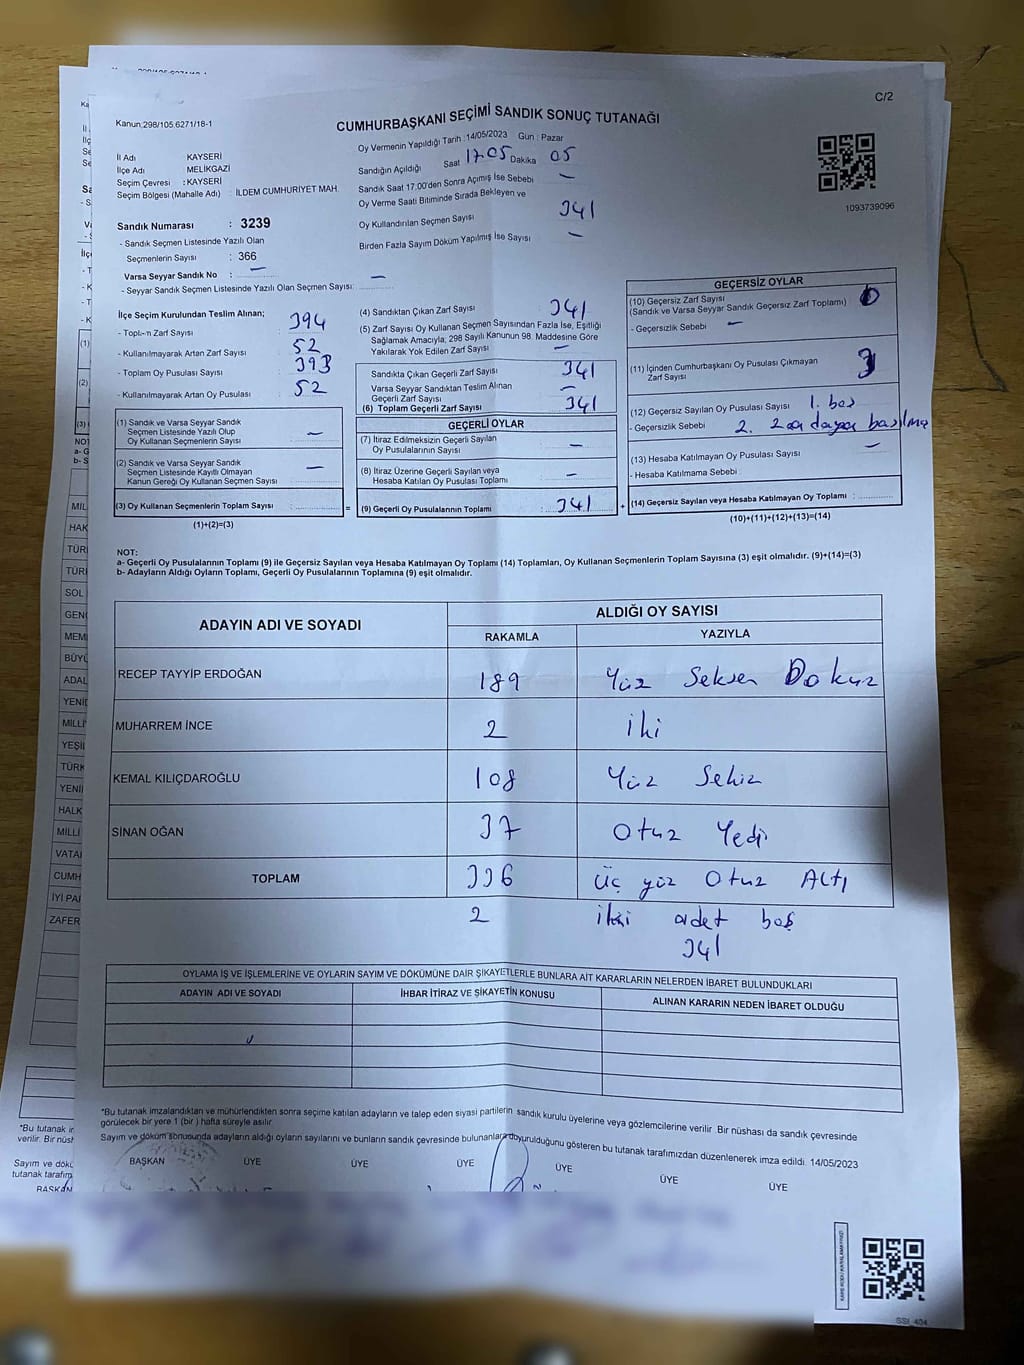 C/2
Kanun,298/105.6271/18-1
CUMHURBAŞKANI SEÇİMİ SANDIK SONUÇ TUTANAĞI
İl Adı KAYSERİ
İlçe Adı MELİKGAZİ
Seçim Çevresi : KAYSERİ
Seçim Bölgesi (Mahalle Adı) : İLDEM CUMHURİYET MAH.
Oy Vermenin Yapıldığı Tarih :14/05/2023 Gün : Pazar
Sandığın Açıldığı Saat 17.05 Dakika 05
Sandık Saat 17.00'den Sonra Açımış İse Sebebi —
Oy Verme Saati Bitiminde Sırada Bekleyen ve
Oy Kullandırılan Seçmen Sayısı 341
Birden Fazla Sayım Döküm Yapılmış İse Sayısı —
1093739096
Sandık Numarası : 3239
- Sandık Seçmen Listesinde Yazılı Olan
Seçmenlerin Sayısı : 366
Varsa Seyyar Sandık No : —
- Seyyar Sandık Seçmen Listesinde Yazılı Olan Seçmen Sayısı: —
İlçe Seçim Kurulundan Teslim Alınan;
- Toplam Zarf Sayısı 394
- Kullanılmayarak Artan Zarf Sayısı 52
- Toplam Oy Pusulası Sayısı 393
- Kullanılmayarak Artan Oy Pusulası 52
(1) Sandık ve Varsa Seyyar Sandık
Seçmen Listesinde Yazılı Olup
Oy Kullanan Seçmenlerin Sayısı —
(2) Sandık ve Varsa Seyyar Sandık
Seçmen Listesinde Kayıtlı Olmayan
Kanun Gereği Oy Kullanan Seçmen Sayısı —
(3) Oy Kullanan Seçmenlerin Toplam Sayısı =
(1)+(2)=(3)
(4) Sandıktan Çıkan Zarf Sayısı 341
(5) Zarf Sayısı Oy Kullanan Seçmen Sayısından Fazla İse, Eşitliği
Sağlamak Amacıyla; 298 Sayılı Kanunun 98. Maddesine Göre
Yakılarak Yok Edilen Zarf Sayısı —
Sandıkta Çıkan Geçerli Zarf Sayısı 341
Varsa Seyyar Sandıktan Teslim Alınan
Geçerli Zarf Sayısı —
(6) Toplam Geçerli Zarf Sayısı 341
GEÇERLİ OYLAR
(7) İtiraz Edilmeksizin Geçerli Sayılan
Oy Pusulalarının Sayısı —
(8) İtiraz Üzerine Geçerli Sayılan veya
Hesaba Katılan Oy Pusulası Toplamı —
(9) Geçerli Oy Pusulalarının Toplamı 341 +
GEÇERSİZ OYLAR
(10) Geçersiz Zarf Sayısı
(Sandık ve Varsa Seyyar Sandık Geçersiz Zarf Toplamı) 0
- Geçersizlik Sebebi —
(11) İçinden Cumhurbaşkanı Oy Pusulası Çıkmayan
Zarf Sayısı 3
(12) Geçersiz Sayılan Oy Pusulası Sayısı 1. boş
- Geçersizlik Sebebi 2.
(13) Hesaba Katılmayan Oy Pusulası Sayısı —
- Hesaba Katılmama Sebebi
(14) Geçersiz Sayılan veya Hesaba Katılmayan Oy Toplamı :
(10)+(11)+(12)+(13)=(14)
NOT:
a- Geçerli Oy Pusulalarının Toplamı (9) ile Geçersiz Sayılan veya Hesaba Katılmayan Oy Toplamı (14) Toplamları, Oy Kullanan Seçmenlerin Toplam Sayısına (3) eşit olmalıdır. (9)+(14)=(3)
b- Adayların Aldığı Oyların Toplamı, Geçerli Oy Pusulalarının Toplamına (9) eşit olmalıdır.
ADAYIN ADI VE SOYADI ALDIĞI OY SAYISI
RAKAMLA YAZIYLA
RECEP TAYYİP ERDOĞAN 189 Yüz Seksen Dokuz
MUHARREM İNCE 2 İki
KEMAL KILIÇDAROĞLU 108 Yüz Sekiz
SİNAN OĞAN 37 Otuz Yedi
TOPLAM 336 Üç yüz Otuz Altı
2 iki adet boş
341
OYLAMA İŞ VE İŞLEMLERİNE VE OYLARIN SAYIM VE DÖKÜMÜNE DAİR ŞİKAYETLERLE BUNLARA AİT KARARLARIN NELERDEN İBARET BULUNDUKLARI
ADAYIN ADI VE SOYADI İHBAR İTİRAZ VE ŞİKAYETİN KONUSU ALINAN KARARIN NEDEN İBARET OLDUĞU
*Bu tutanak imzalandıktan ve mühürlendikten sonra seçime katılan adayların ve talep eden siyasi partilerin sandık kurulu üyelerine veya gözlemcilerine verilir. Bir nüshası da sandık çevresinde
görülecek bir yere 1 (bir ) hafta süreyle asılır.
Sayım ve döküm sonusunda adayların aldığı oyların sayılarını ve bunların sandık çevresinde bulunanlara duyurulduğunu gösteren bu tutanak tarafımızdan düzenlenerek imza edildi. 14/05/2023
BAŞKAN ÜYE ÜYE ÜYE ÜYE ÜYE ÜYE
SSİ_404